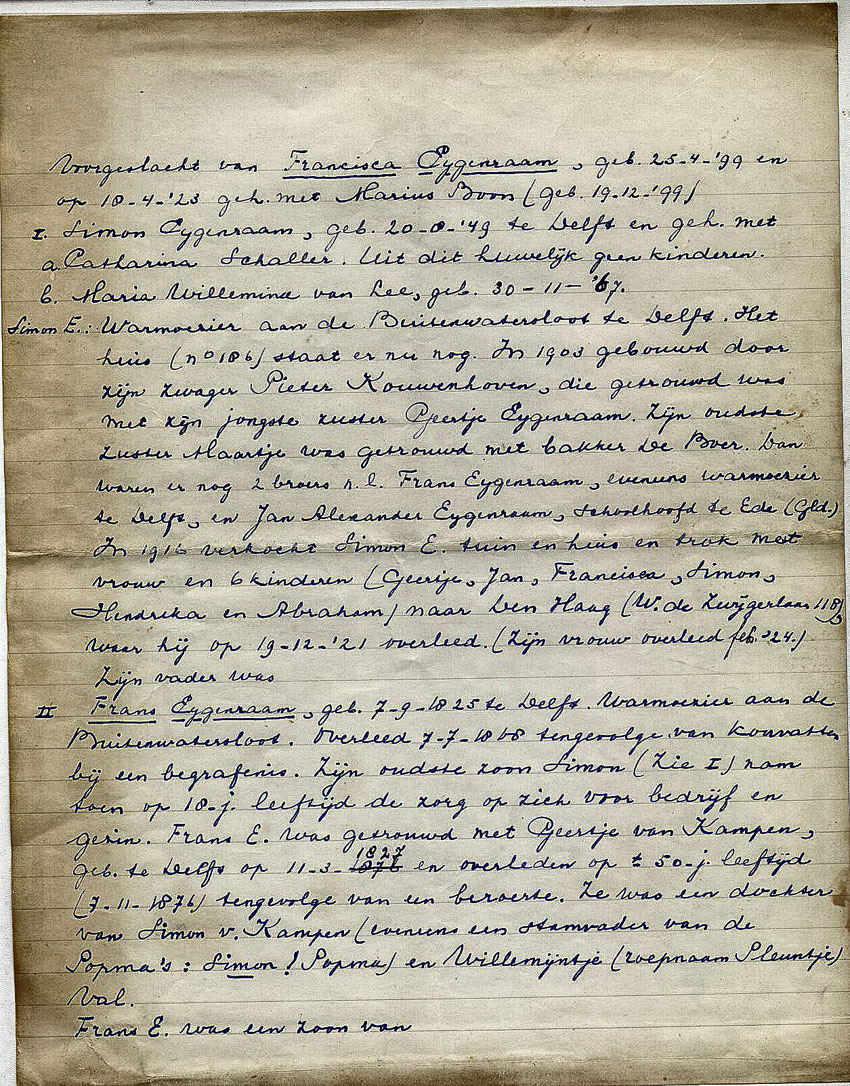 Voorgeslacht van Francisca Eygenraam, geb. 25-4-'99 en
op 18-4-'23 geh. met Marius Boon (geb. 19-12-'99)
I. Simon Eygenraam, geb. 20-8-'49 te Delft en geh. met
a. Catharina Schaller. Uit dit huwelijk geen kinderen.
b. Maria Willemina van Lee, geb. 30-11-'67.
Simon E.: Warmoezier aan de Buitenwatersloot te Delft. Het
huis (no 186) staat er nu nog. In 1903 gebouwd door
zijn zwager Pieter Kouwenhoven, die getrouwd was
met zijn jongste zuster Geertje Eygenraam. Zijn oudste
zuster Maartje was getrouwd met bakker De Boer. Dan
waren er nog 2 broers n.l. Frans Eygenraam, eveneens warmoezier
te Delft, en Jan Alexander Eygenraam, schoolhoofd te Ede (Gld.)
In 1916 verkocht Simon E. tuin en huis en trok met
vrouw en 6 kinderen (Geertje, Jan, Francisca, Simon,
Hendrika en Abraham) naar Den Haag (W. de Zwijgerlaan 118)
waar hij op 19-12-'21 overleed. (Zijn vrouw overleed feb. '24.)
Zijn vader was
II Frans Eygenraam, geb. 7-9-1825 te Delft. Warmoezier aan de
Buitenwatersloot. Overleed 7-7-1868 tengevolge van kouvatten
bij een begrafenis. Zijn oudste zoon Simon (Zie I) nam
toen op 18-j. leeftijd de zorg op zich voor bedrijf en
gezin. Frans E. was getrouwd met Geertje van Kampen,
1827
geb. te Delft op 11-3-1876 en overleden op ± 50-j. leeftijd
(7-11-1876) tengevolge van een beroerte. Ze was een dochter
van Simon v. Kampen (eveneens een stamvader van de
Popma's: Simon! Popma) en Willemijntje (roepnaam Pleuntje)
Val.
Frans E. was een zoon van